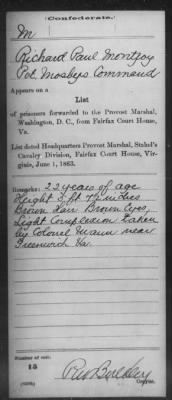 Confederate.
M
Richard Paul Montjoy
Pvt. Mosby's Command
Appears on a
List
of prisoners forwarded to the Provost Marshal,
Washington, D. C., from Fairfax Court House,
Va.
List dated Headquarters Provost Marshal, Stahel's
Cavalry Division, Fairfax Court House, Vir-
ginia, June 1, 1863.
Remarks: 22 years of age
Height 5 ft 7½ inches
Brown Hair Brown Eyes,
Light Complexion Taken
by Colonel Mann near
Greenwich Va.
Number of roll:
15
Copyist.